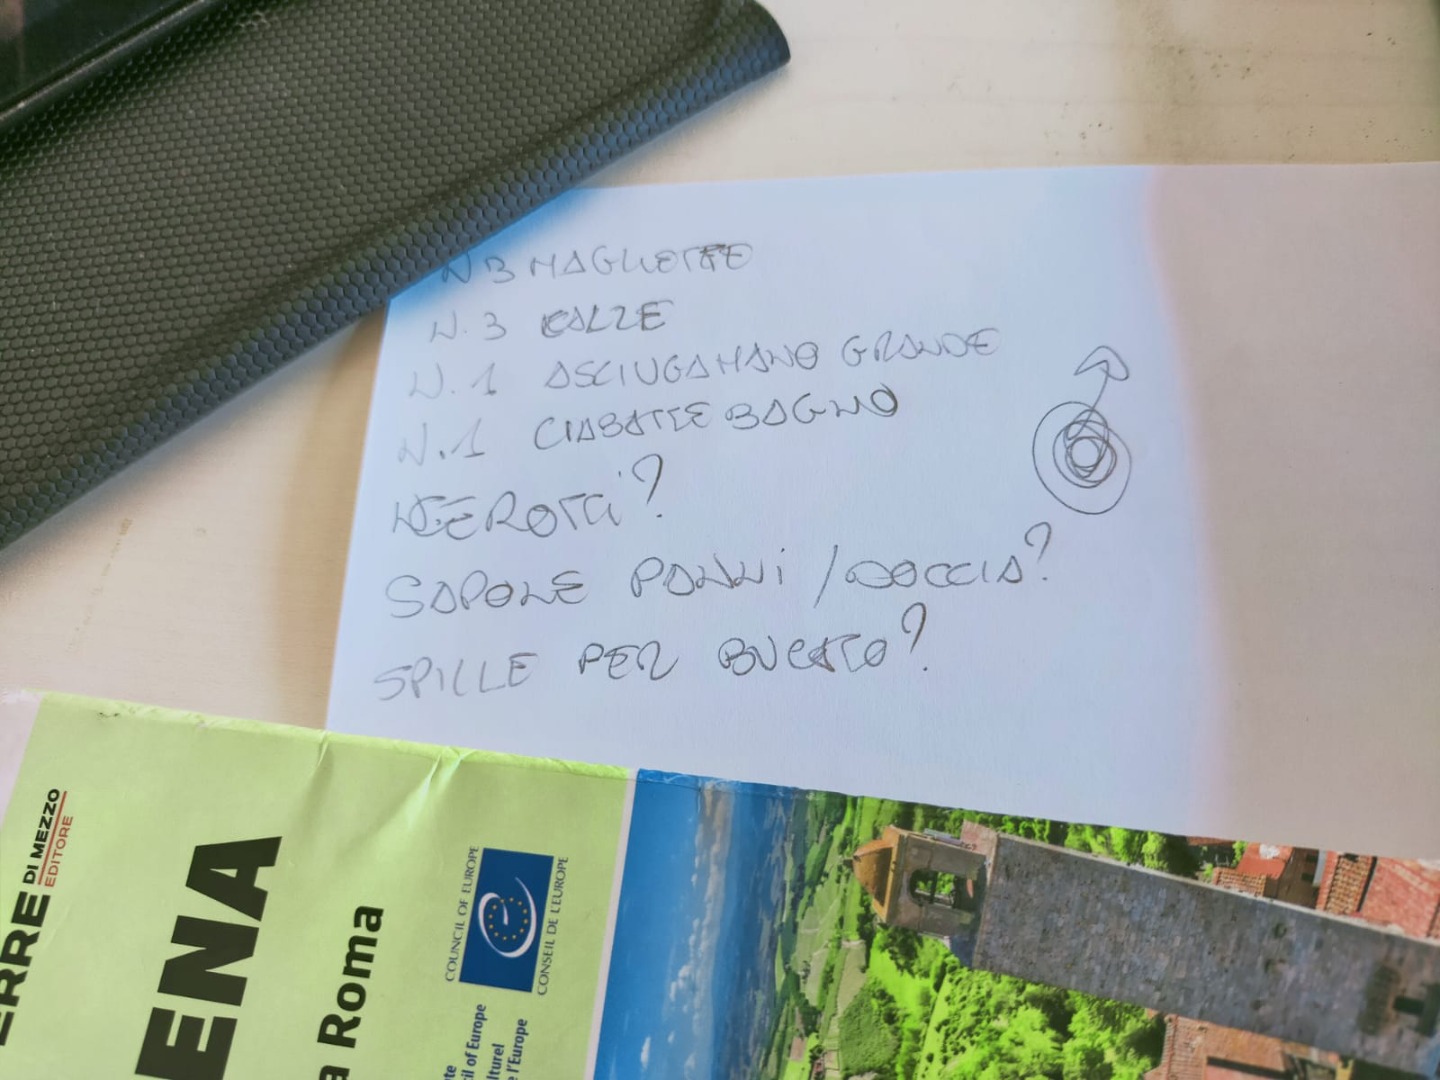 N 3 MAGLIETTE
N. 3 CALZE
N. 1 ASCIUGAMANO GRANDE
N. 1 CIABATTE BAGNO
SAPONE PANNI / DOCCIA?
SPILLE PER BUCATO?
ERRE DI MEZZO
EDITORE
ENA
a Roma
COUNCIL OF EUROPE
CONSEIL DE L'EUROPE
te
cil of Europe
lturel
e l'Europe